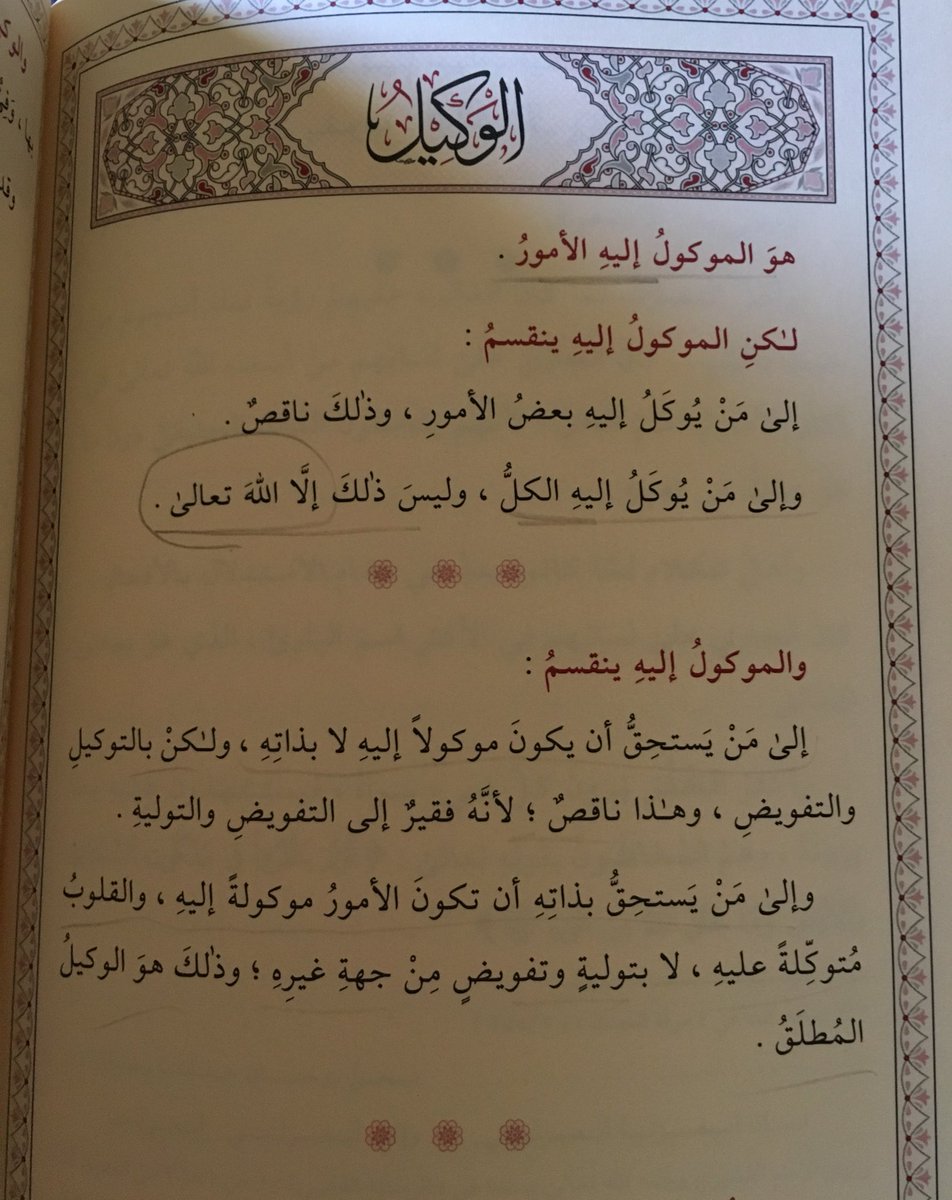 الوَكيلُ
هوَ الموكولُ إليهِ الأمورُ .
لـٰكنِ الموكولُ إليهِ ينقسمُ :
إلىٰ مَنْ يُوكَلُ إليهِ بعضُ الأمورِ ، وذٰلكَ ناقصٌ .
وإلىٰ مَنْ يُوكَلُ إليهِ الكلُّ ، وليسَ ذٰلكَ إلَّا اللهَ تعالىٰ .
والموكولُ إليهِ ينقسمُ :
إلىٰ مَنْ يَستحِقُّ أن يكونَ موكولاً إليهِ لا بذاتِهِ ، ولـٰكنْ بالتوكيلِ
والتفويضِ ، وهـٰذا ناقصٌ ؛ لأنَّهُ فقيرٌ إلى التفويضِ والتوليةِ .
وإلىٰ مَنْ يَستحِقُّ بذاتِهِ أن تكونَ الأمورُ موكولةً إليهِ ، والقلوبُ
مُتوكِّلةً عليهِ ، لا بتوليةٍ وتفويضٍ مِنْ جهةِ غيرِهِ ؛ وذٰلكَ هوَ الوكيلُ
المُطلَقُ .